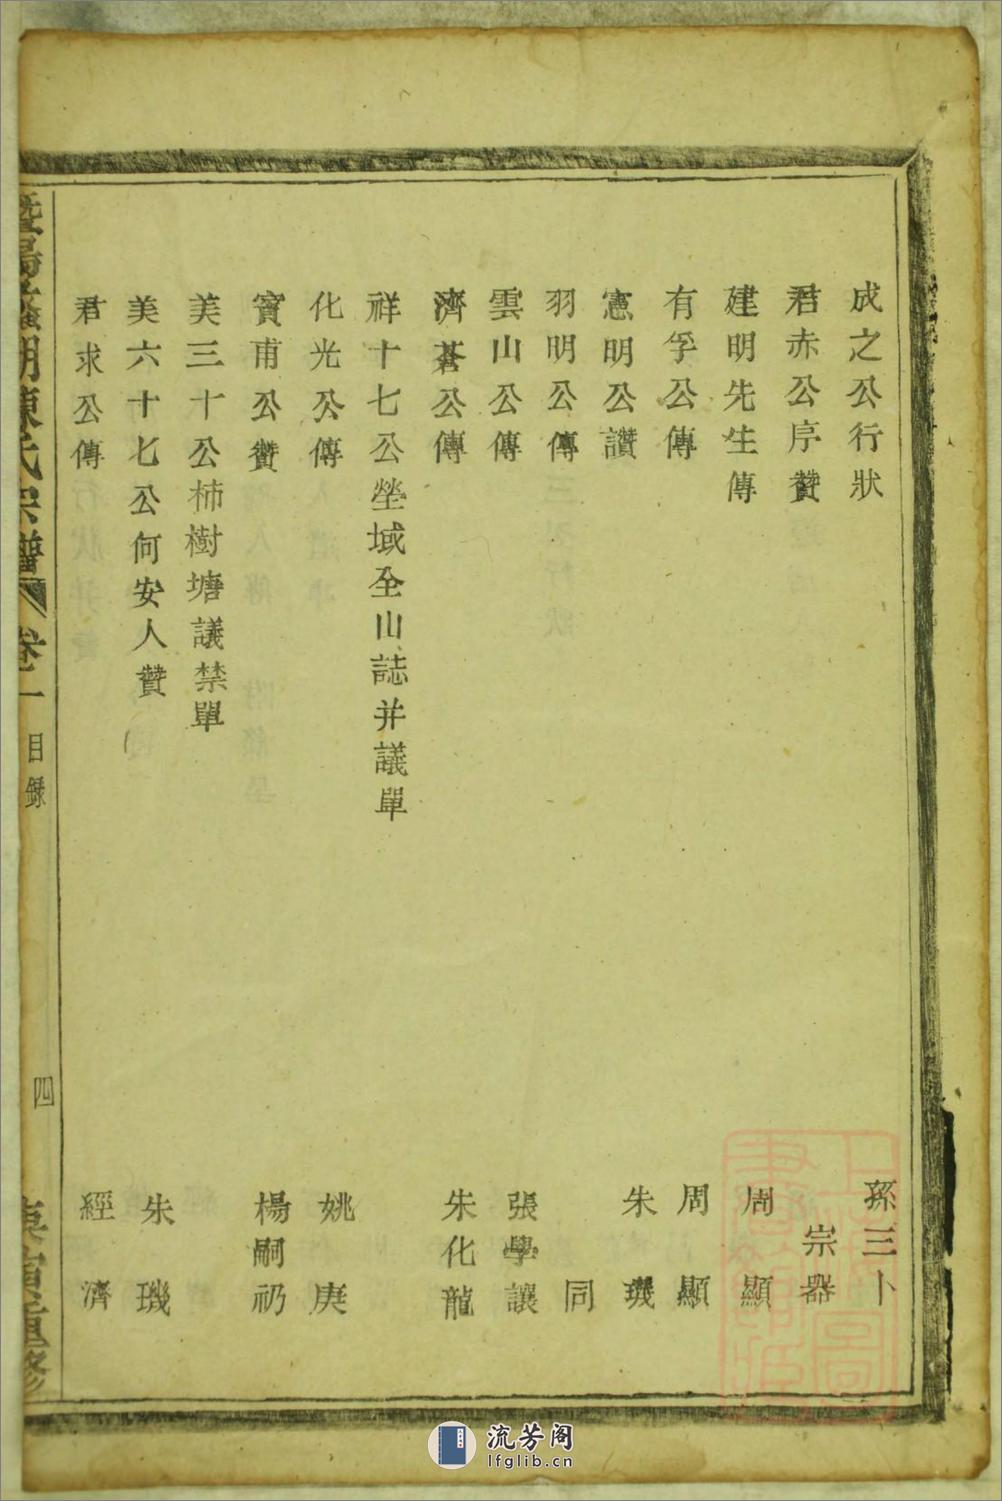 成之公行狀 孫三卜
君赤公序贊 宗器
建明先生傳 周顯
有孚公傳 周顯
憲明公讚 朱璣
羽明公傳 同
雲山公傳 張學讓
濟蒼公傳 朱化龍
祥十七公塋域全山誌并議單
化光公傳 姚庚
寶甫公贊 楊嗣礽
美三十公柿樹塘議禁單
美六十七公何安人贊 朱璣
君求公傳 經濟
暨陽 湖陳氏宗譜 卷一 目録 四 庚寅重修
上海圖書館藏
流芳阁
lfglib.cn